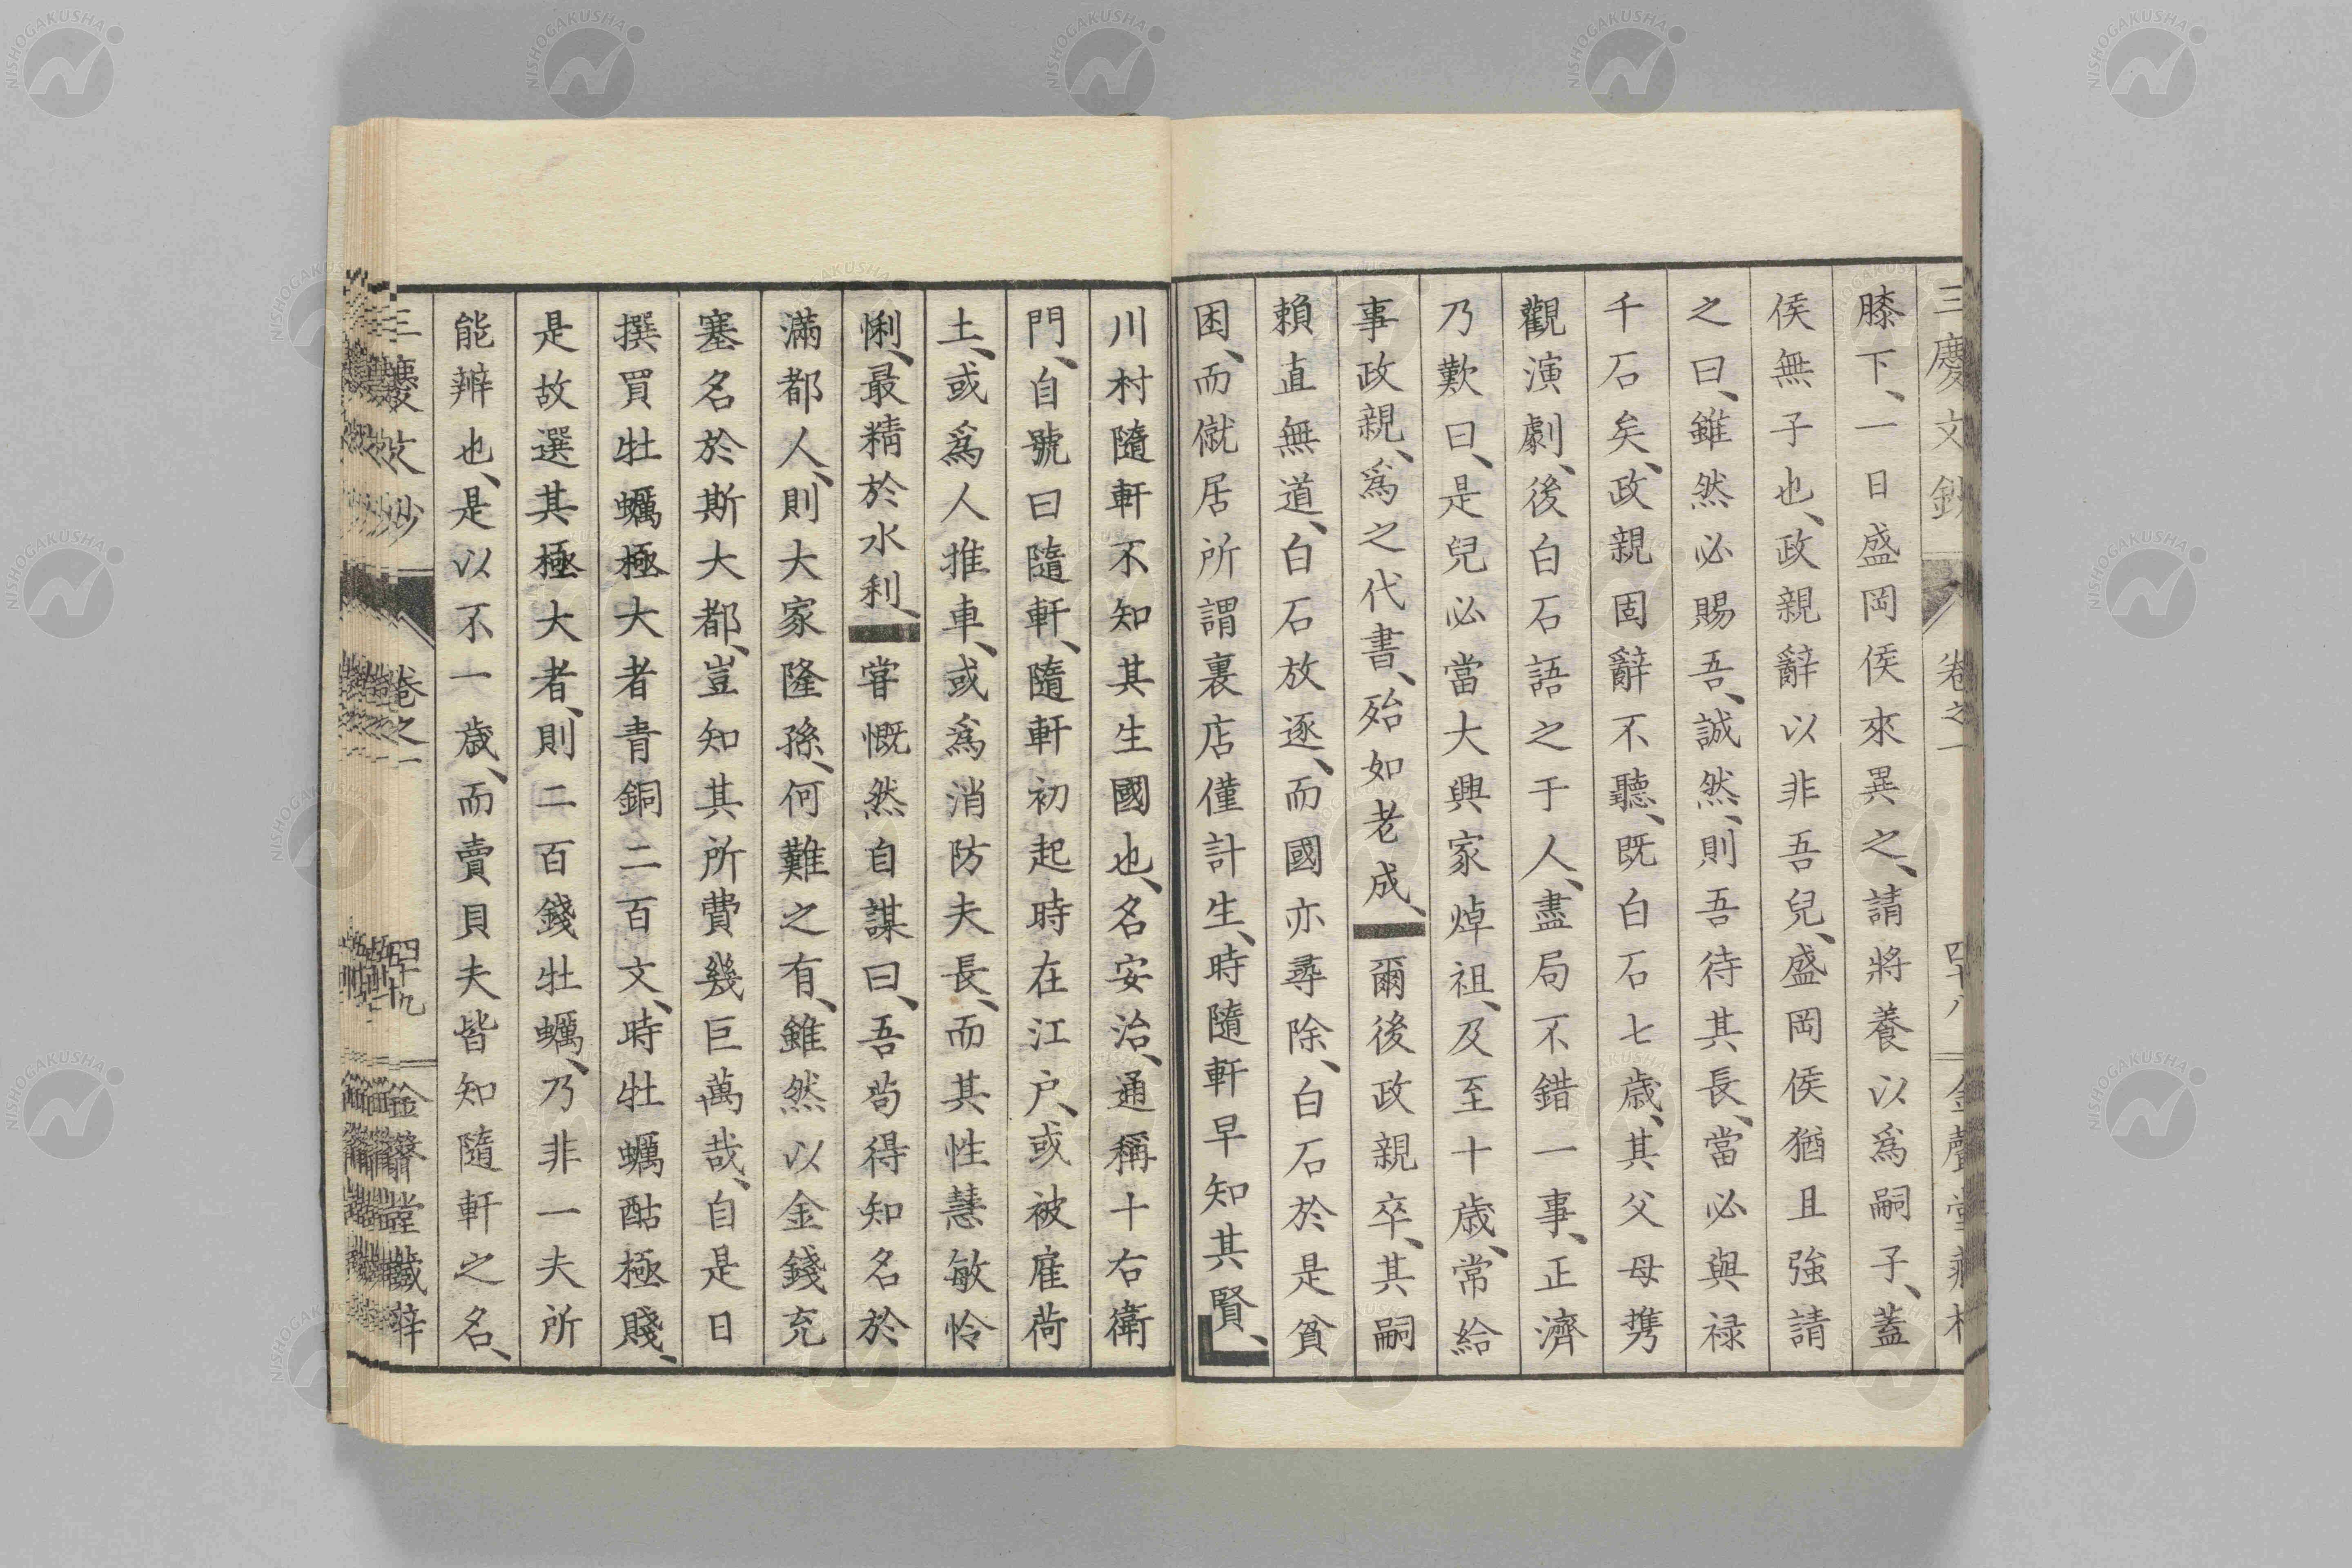 三慶文鈔 卷之一 四十八 金聲堂藏梓
膝下、一日盛岡侯來異之、請將養以爲嗣子、蓋
侯無子也、政親辭以非吾兒、盛岡侯猶且強請
之曰、雖然必賜吾、誠然、則吾待其長、當必與禄
千石矣、政親固辭不聽、既白石七歳、其父母携
觀演劇、後白石語之于人、盡局不錯一事、正濟
乃歎曰、是兒必當大興家焯祖、及至十歳、常給
事政親、爲之代書、殆如老成、爾後政親卒、其嗣
賴直無道、白石放逐、而國亦尋除、白石於是貧
困、而僦居所謂裏店僅計生、時隨軒早知其賢、
川村隨軒不知其生國也、名安治、通稱十右衛
門、自號曰隨軒、隨軒初起時在江戸、或被雇荷
土、或爲人推車、或爲消防夫長、而其性慧敏怜
悧、最精於水利、嘗慨然自謀曰、吾苟得知名於
滿都人、則大家隆孫、何難之有、雖然以金錢充
塞名於斯大都、豈知其所費幾巨萬哉、自是日
撰買牡蠣極大者青銅二百文、時牡蠣酤極賤、
是故選其極大者、則二百錢牡蠣、乃非一夫所
能辨也、是以不一歳、而賣貝夫皆知隨軒之名、
三慶文鈔 卷之一 四十九 金聲堂藏梓
NISHOGAKUSHA